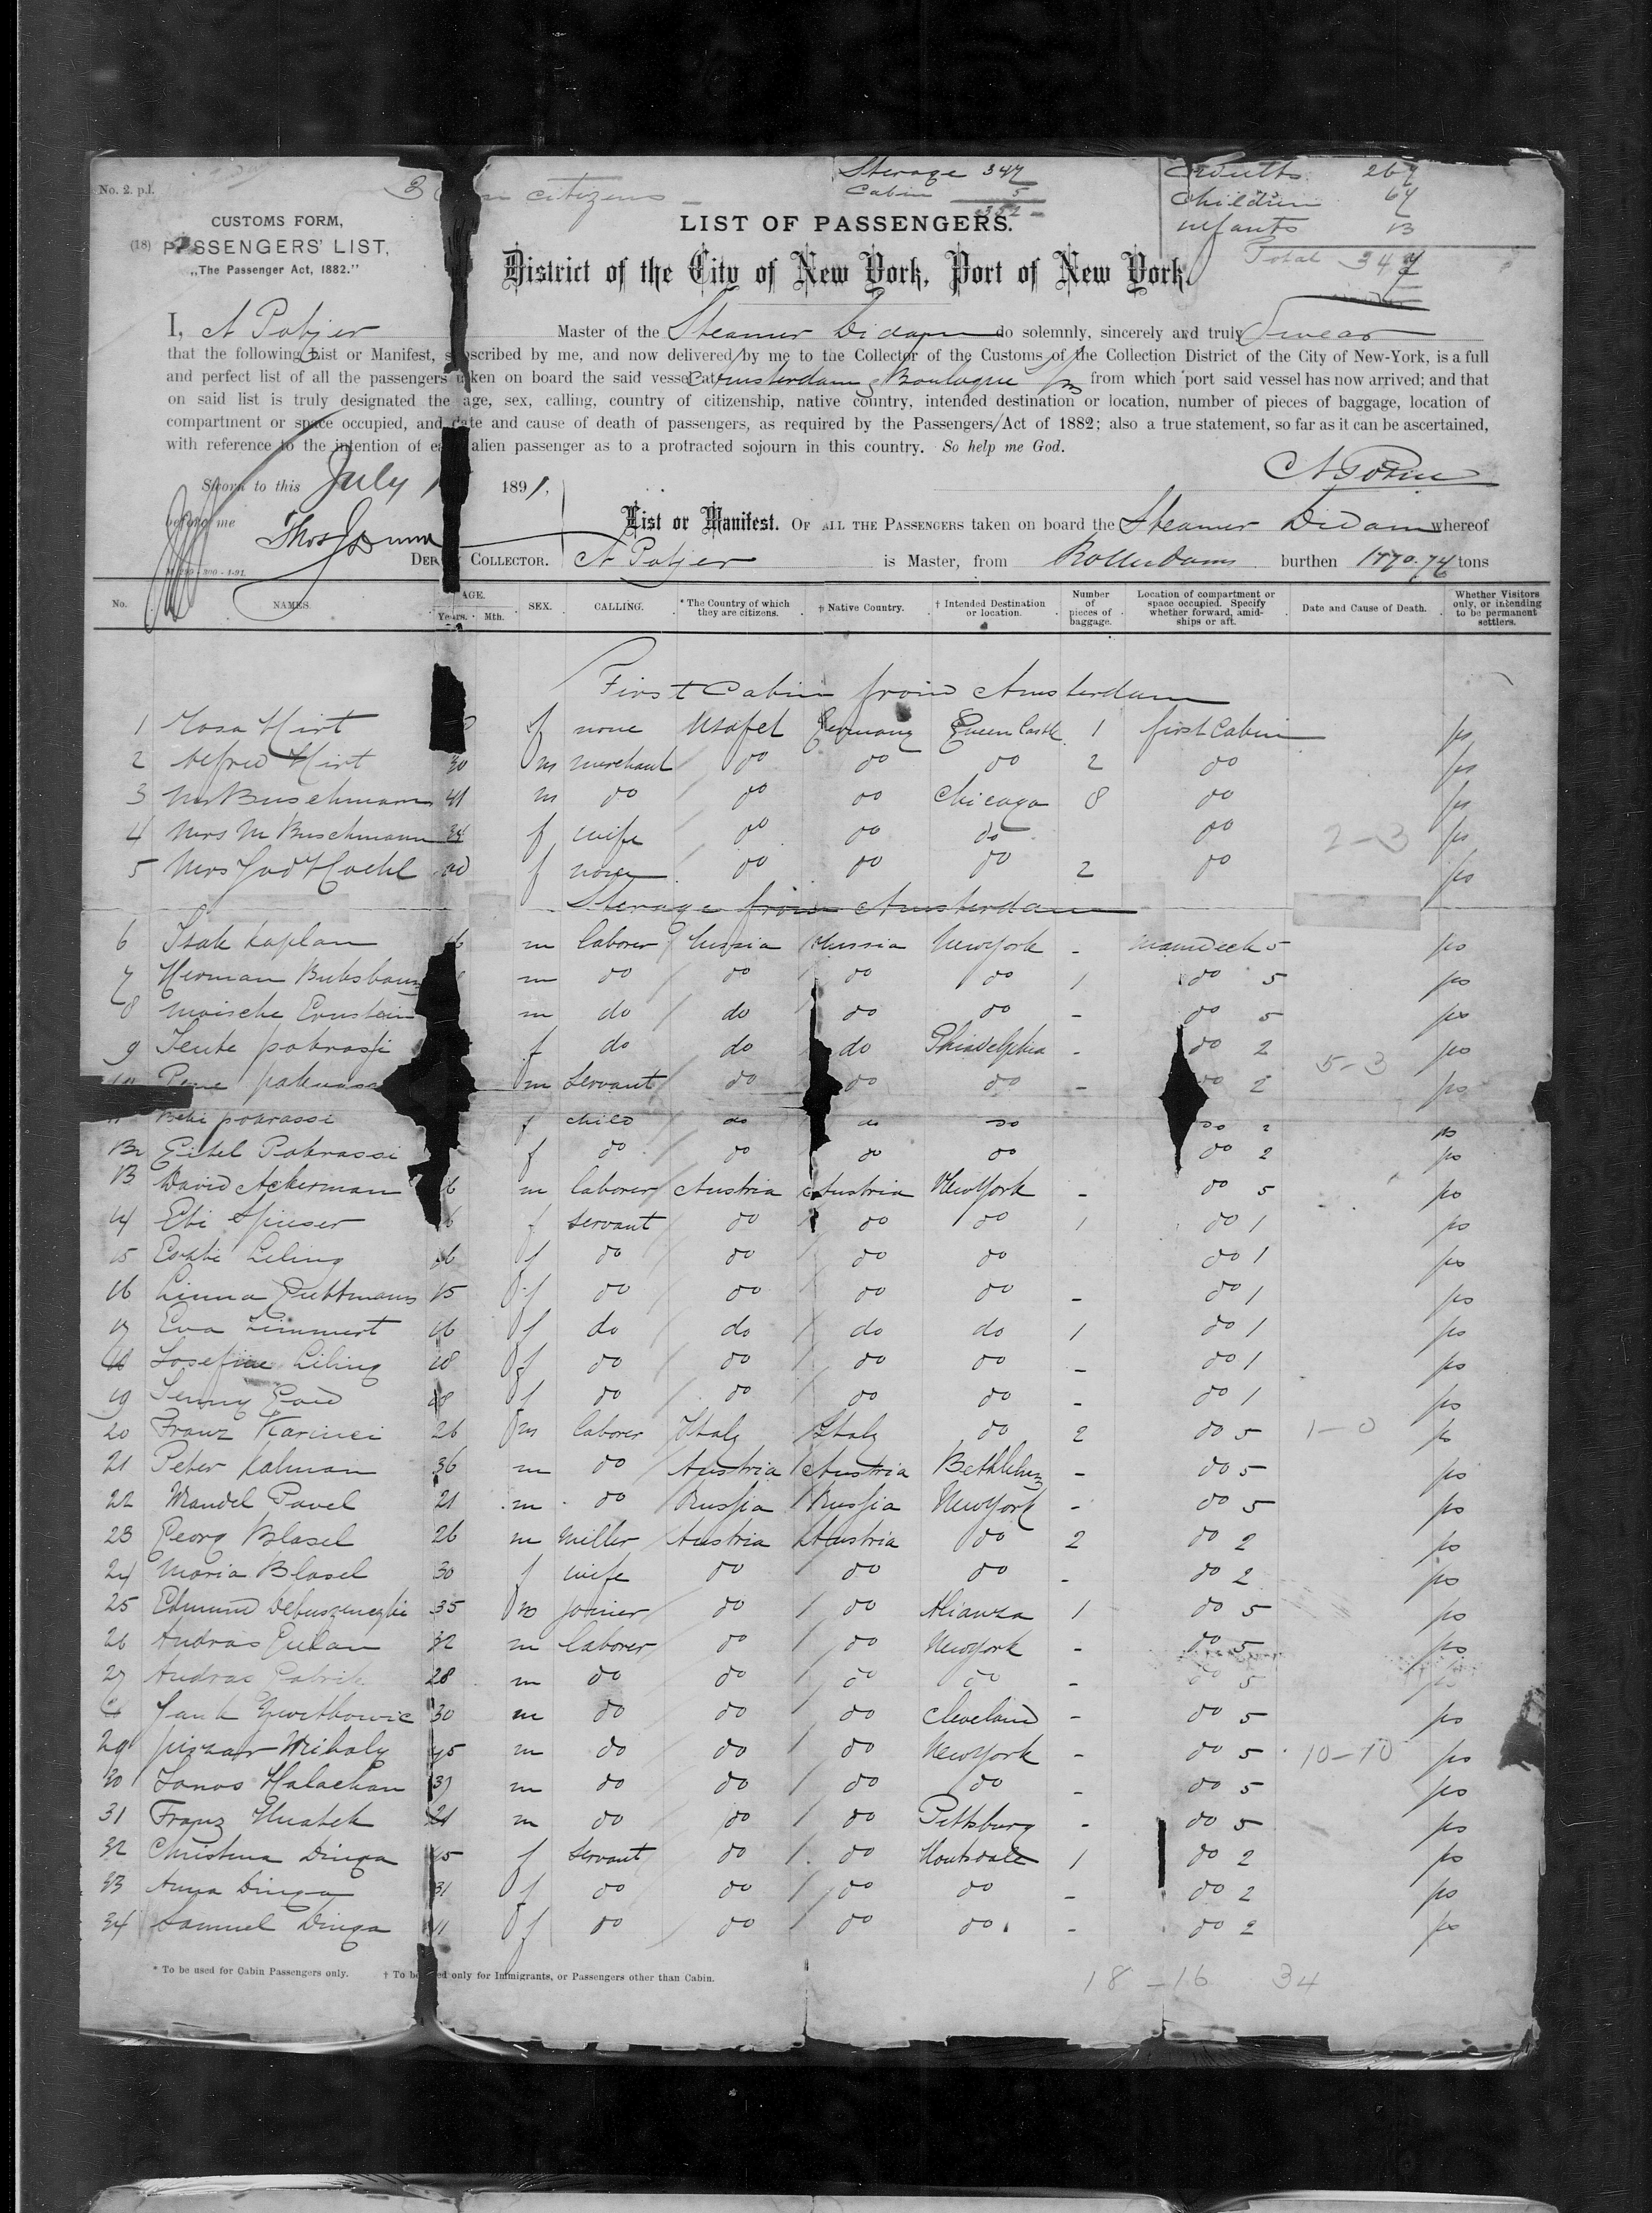 No. 2. p.l.
citizens
Sterage 347
Cabin 5
352
Adults 267
Children 67
infants 13
Total 347
CUSTOMS FORM,
(18) PASSENGERS' LIST,
„The Passenger Act, 1882."
LIST OF PASSENGERS.
District of the City of New York, Port of New York.
I, A Potjer Master of the Steamer Didam do solemnly, sincerely and truly Swear
that the following List or Manifest, subscribed by me, and now delivered by me to the Collector of the Customs of the Collection District of the City of New-York, is a full
and perfect list of all the passengers taken on board the said vessel at Amsterdam & Boulogne from which port said vessel has now arrived; and that
on said list is truly designated the age, sex, calling, country of citizenship, native country, intended destination or location, number of pieces of baggage, location of
compartment or space occupied, and date and cause of death of passengers, as required by the Passengers/Act of 1882; also a true statement, so far as it can be ascertained,
with reference to the intention of each alien passenger as to a protracted sojourn in this country. So help me God.
A Potjer
Sworn to this July 1891,
before me
Thos Dunn
DEP COLLECTOR.
List or Manifest. OF ALL THE PASSENGERS taken on board the Steamer Didam whereof
A Potjer is Master, from Rotterdam burthen 1770.74 tons
No. NAMES. AGE. Years. Mth. SEX. CALLING. * The Country of which they are citizens. † Native Country. † Intended Destination or location. Number of pieces of baggage. Location of compartment or space occupied. Specify whether forward, amidships or aft. Date and Cause of Death. Whether Visitors only, or intending to be permanent settlers.
First Cabin from Amsterdam
1 Rosa Hirt f none Usofel Germany Queen Castle 1 first Cabin ps
2 Alfred Hirt 30 m merchant do do do 2 do ps
3 Mr Buschmann 41 m do do do Chicago 8 do ps
4 Mrs M Buschmann 34 f wife do do do do 2-3 ps
5 Mrs Hoehl f none do do do 2 do ps
Sterage from Amsterdam
6 Isak Kaplan 6 m laborer Russia Russia New York - maindeck 5 ps
7 Herman Buksbaum m do do do do 1 do 5 ps
8 Moische Ernstein m do do do do - do 5 ps
9 Teube pokrassi f do do do Philadelphia - do 2 5-3 ps
10 pokrassi m servant do do do - do 2 ps
11 Bebi pokrassi f child do do do do 2 ps
12 Eitel Pokrassi f do do do do do 2 ps
13 David Ackerman 6 m laborer Austria Austria New York - do 5 ps
14 Ebi Spieser 6 f servant do do do 1 do 1 ps
15 Liling 16 f do do do do do 1 ps
16 Linna Puttmann 15 f do do do do - do 1 ps
17 Eva Limmert 16 f do do do do 1 do 1 ps
18 Josefine Liling 18 f do do do do - do 1 ps
19 Jenny 18 f do do do do - do 1 ps
20 Franz Karinei 26 m laborer Italy Italy do 2 do 5 1-0 ps
21 Peter Kalman 36 m do Austria Austria Bethlehem - do 5 ps
22 Mandel Pavel 21 m do Russia Russia New York - do 5 ps
23 Georg Blasel 26 m miller Austria Austria do 2 do 2 ps
24 Maria Blasel 30 f wife do do do - do 2 ps
25 Edmund 35 m joiner do do Alianza 1 do 5 ps
26 Andras 32 m laborer do do New York - do 5 ps
27 Andras Patrik 28 m do do do do - do 5 ps
30 m do do do Cleveland - do 5 ps
29 Mihaly 45 m do do do New York - do 5 10-10 ps
30 Janos Halachan 37 m do do do do - do 5 ps
31 Franz 21 m do do do Pittsburg - do 5 ps
32 Christina Dinga 45 f servant do do Houtzdale 1 do 2 ps
33 Anna Dinga 31 f do do do do - do 2 ps
34 Samuel Dinga 11 f do do do do - do 2 ps
* To be used for Cabin Passengers only. † To be used only for Immigrants, or Passengers other than Cabin.
18-16 34